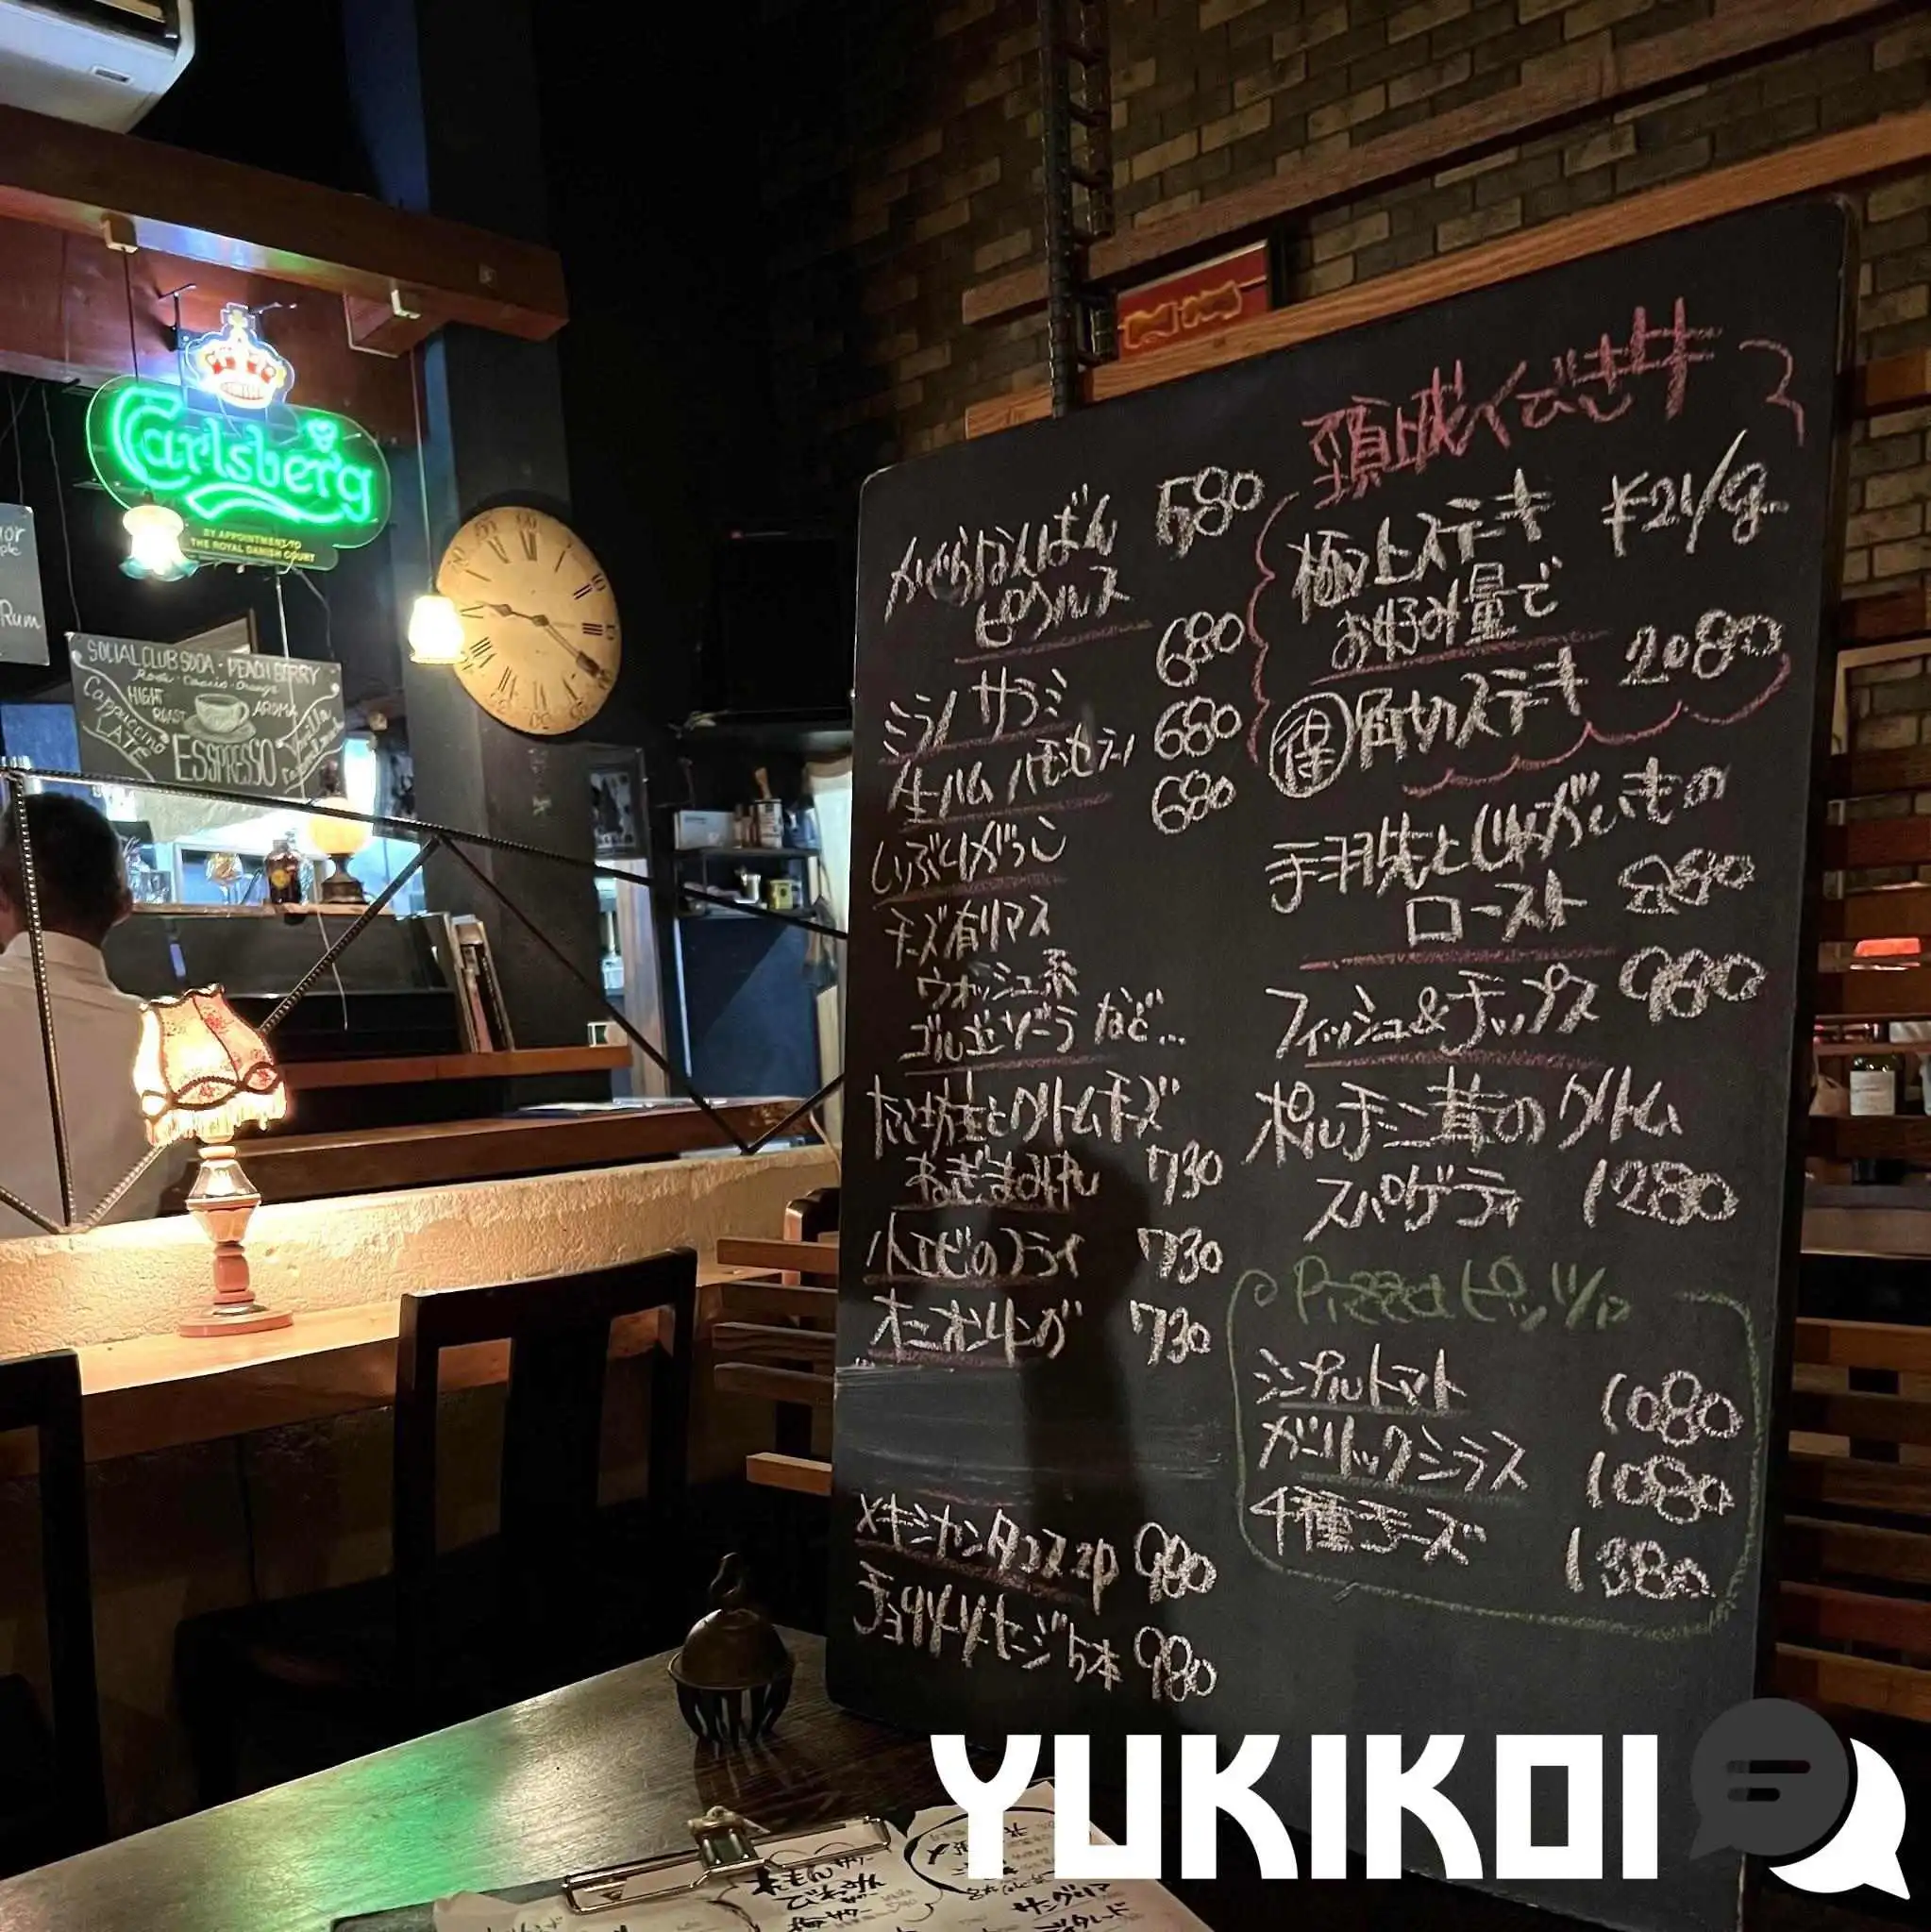 Carlsberg
BY APPOINTMENT TO
THE ROYAL DANISH COURT
Rum
SOCIAL CLUB SODA - PEACH BERRY
HIGHT
ROAST
AROMA
Cappuccino
LATE
ESSPRESSO
Vanilla
かぐらなんばん 580
ピクルス
ミラノサラミ 680
生ハム 680
いぶりがっこ 680
チーズ有リマス
ウォッシュ系
ゴルゴンゾーラなど…
とクリームチーズ
ねぎまみれ 730
小エビのフライ 730
オニオンリング 730
メキシカンタコス2p 980
チョリソーソーセージ5本 980
頂戴できます
極上ステーキ ¥21/g
お好み量で
得 角切ステーキ 2080
手羽先とじゃがいもの
ロースト 880
フィッシュ&チップス 980
ポルチーニ茸のクリーム
スパゲティ 1280
Pizza ピッツァ
シンプルトマト 1080
ガーリックシラス 1080
4種チーズ 1380
YUKIKOI